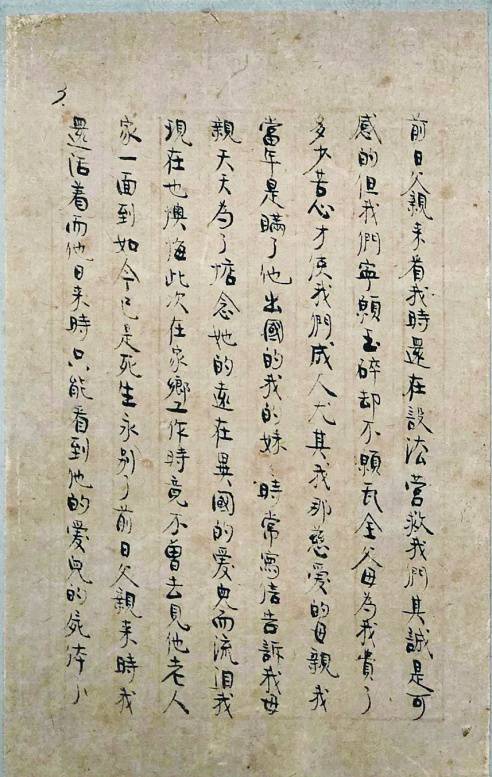 前日父親来看我時還在設法營救我們其誠是可
感的但我們寧願玉碎却不願瓦全父母為我費了
多少苦心才使我們成人尤其我那慈愛的母親我
當年是瞞了他出國的我的妹〻時常寫信告訴我母
親天天為了惦念她的遠在異國的愛兒而流泪我
現在也懊悔此次在家鄉工作時竟不曽去見他老人
家一面到如今已是死生永别了前日父親来時我
還活着而他日来時只能看到他的愛兒的屍体了
3.